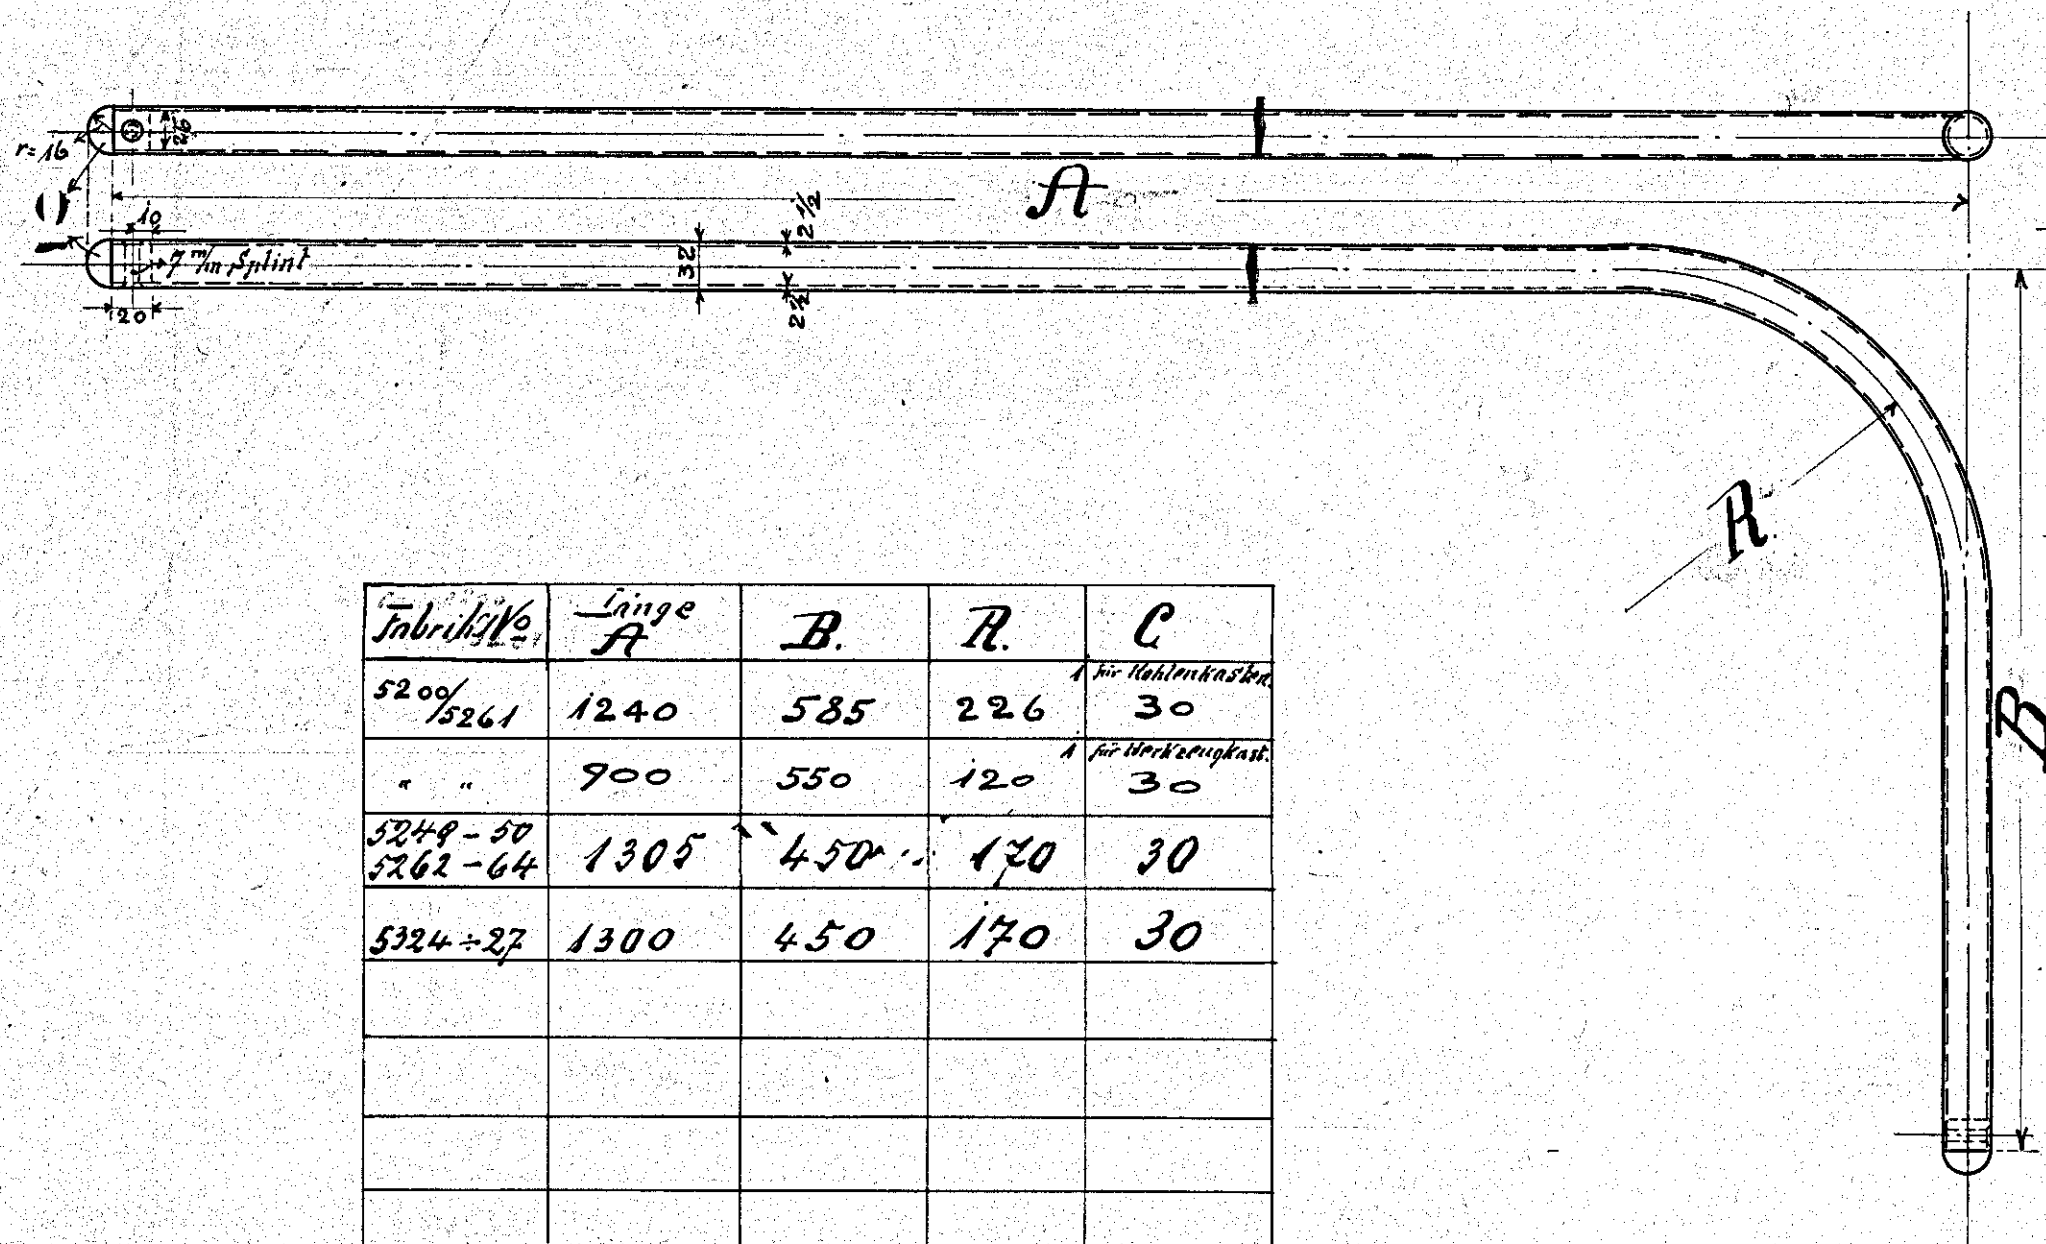 r=16
26
A
10
2 1/2
7 m/m Splint
32
20
2 1/2
R.
B
Fabrik No
Länge A
B.
R.
C
5200/5261
1240
585
226
1 für Kohlenkasten.
30
" "
900
550
120
1 für Werkzeugkast.
30
5249 - 50
5262 - 64
1305
450
170
30
5324 ÷ 27
1300
450
170
30